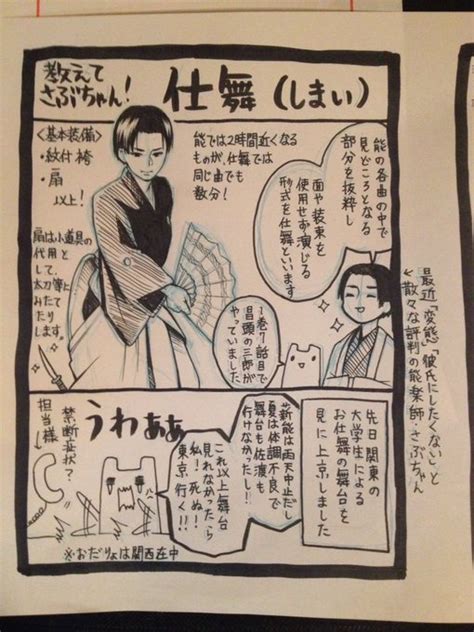 教えて
さぶちゃん!
仕舞(しまい)
能の各曲の中で
見どころとなる
部分を抜粋し
面や装束を
使用せず演じる
形式を仕舞といいます
能では2時間近くなる
ものが、仕舞では
同じ曲でも
数分!
<基本装備>
・紋付袴
・扇
以上!
扇は小道具の
代用と
して、
太刀等に
みたて
たり
します。
1巻7話目で
冒頭の三郎が
やっていました
最近「変態」「彼氏にしたくない」と
散々な評判の能楽師・さぶちゃん
先日関東の
大学生による
お仕舞の舞台を
見に上京しました
薪能は雨天中止だし
夏は体調不良で
舞台も佐渡も
行けなかったし!
これ以上舞台
見れなかったら
私!死ぬ!
東京行く!!
うわぁぁ
禁断症状?
担当様
※おだりょは関西在中